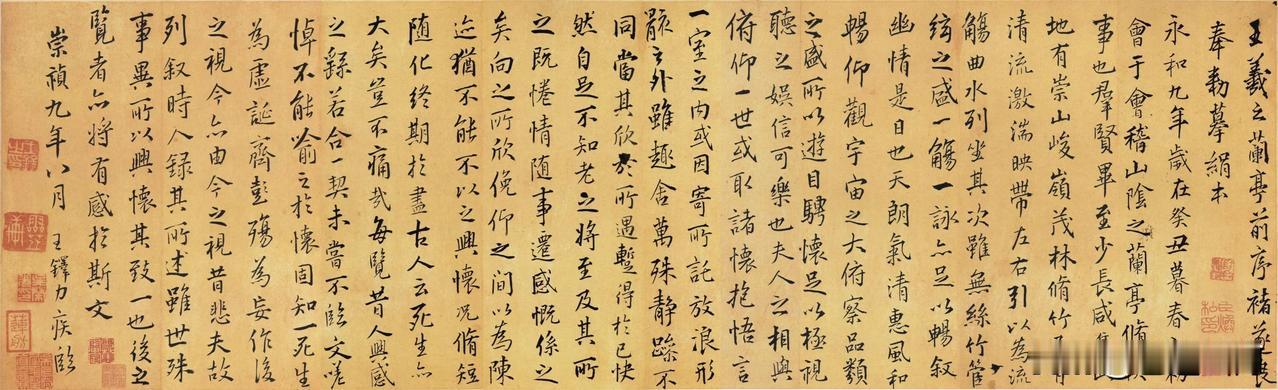 王羲之蘭亭前序褚遂良
奉勅摹絹本
永和九年歲在癸丑暮春之初
會于會稽山陰之蘭亭脩禊
事也羣賢畢至少長咸集此
地有崇山峻嶺茂林脩竹又有
清流激湍映帶左右引以為流
觴曲水列坐其次雖無絲竹管
絃之盛一觴一詠亦足以暢叙
幽情是日也天朗氣清惠風和
暢仰觀宇宙之大俯察品類
之盛所以遊目騁懷足以極視
聽之娛信可樂也夫人之相與
俯仰一世或取諸懷抱悟言
一室之内或因寄所託放浪形
骸之外雖趣舍萬殊静躁不
同當其欣於所遇蹔得於己快
然自足不知老之將至及其所
之既惓情随事遷感慨係之
矣向之所欣俛仰之間以為陳
迹猶不能不以之興懷况脩短
随化終期於盡古人云死生亦
大矣豈不痛哉每覽昔人興感
之繇若合一契未嘗不臨文嗟
悼不能喻之於懷固知一死生
為虛誕齊彭殤為妄作後
之視今亦由今之視昔悲夫故
列叙時人録其所述雖世殊
事異所以興懷其致一也後之
覽者亦將有感於斯文
崇禎九年八月 王鐸力疾臨